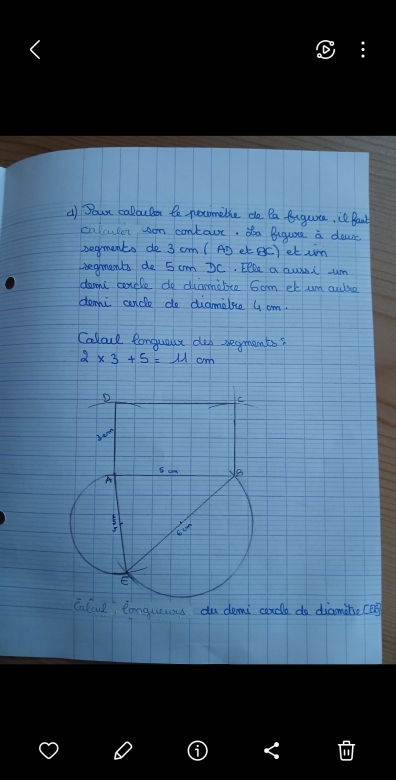 d) Pour calculer le périmètre de la figure, il faut
calculer son contour. La figure à deux
segments de 3 cm ( AD et BC) et un
segments de 5 cm DC. Elle a aussi un
demi cercle de diamètre 6 cm et un autre
demi cercle de diamètre 4 cm.
Calcul longueur des segments :
2 x 3 + 5 = 11 cm
D C
3 cm
A 5 cm B
6 cm
E
Calcul longueurs du demi cercle de diamètre [EB]